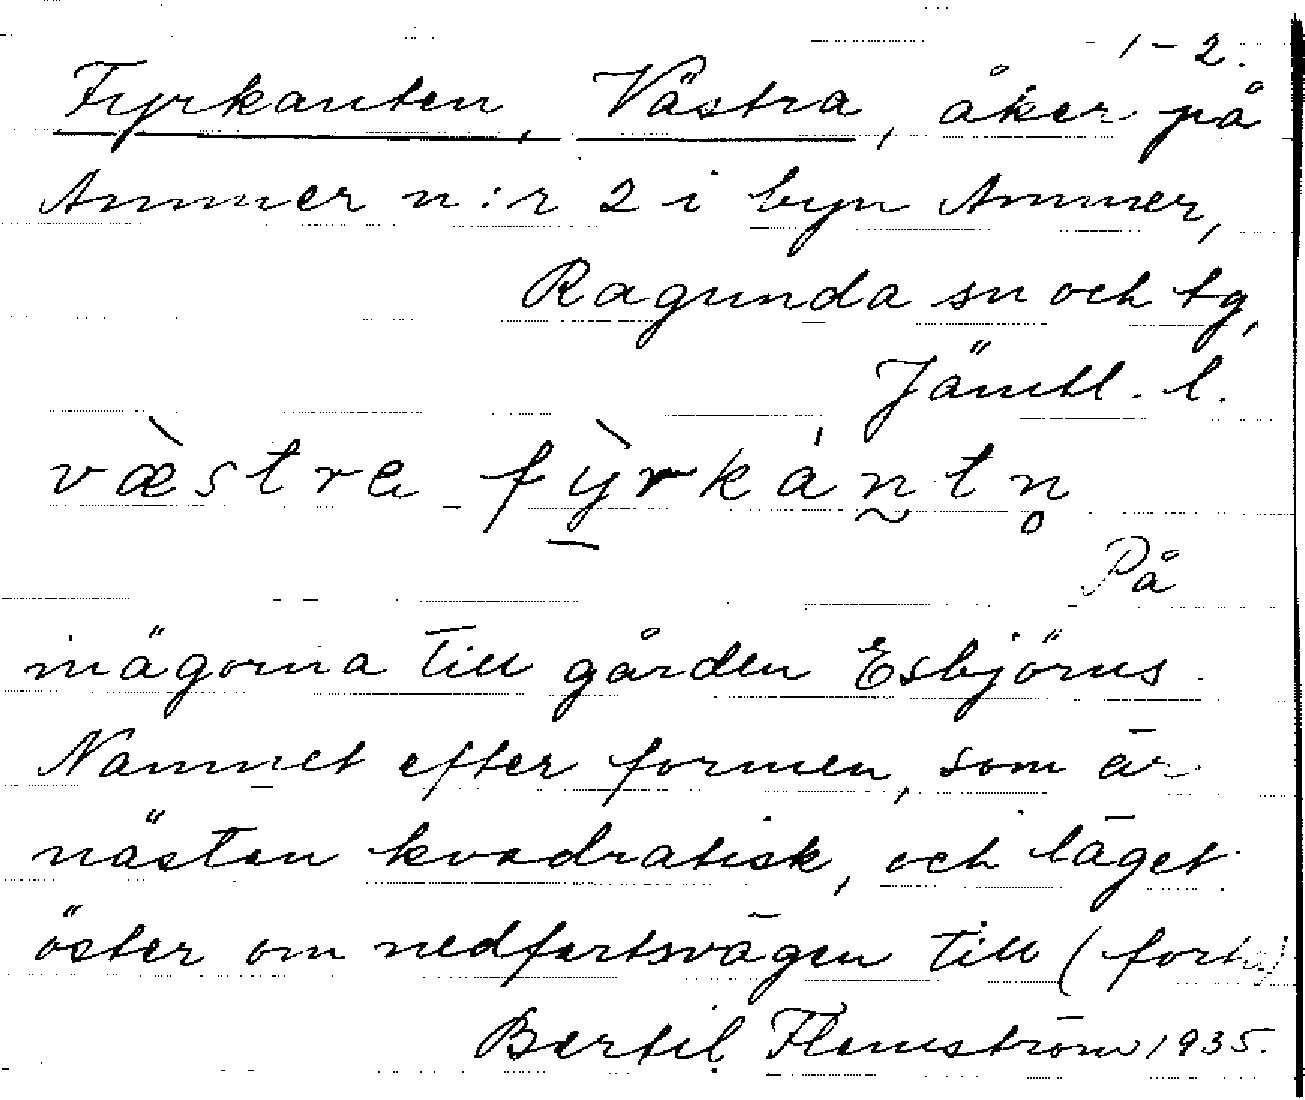 1-2.
Fyrkanten, Västra, åker på
Ammer n:r 2 i byn Ammer,
Ragunda sn och tg,
Jämtl. l.
væ̀stra fỳ̠rkántn̥
På
inägorna till gården Esbjörns.
Namnet efter formen, som är
nästan kvadratisk, och läget
öster om nedfartsvägen till (forts)
Bertil Flemström 1935.